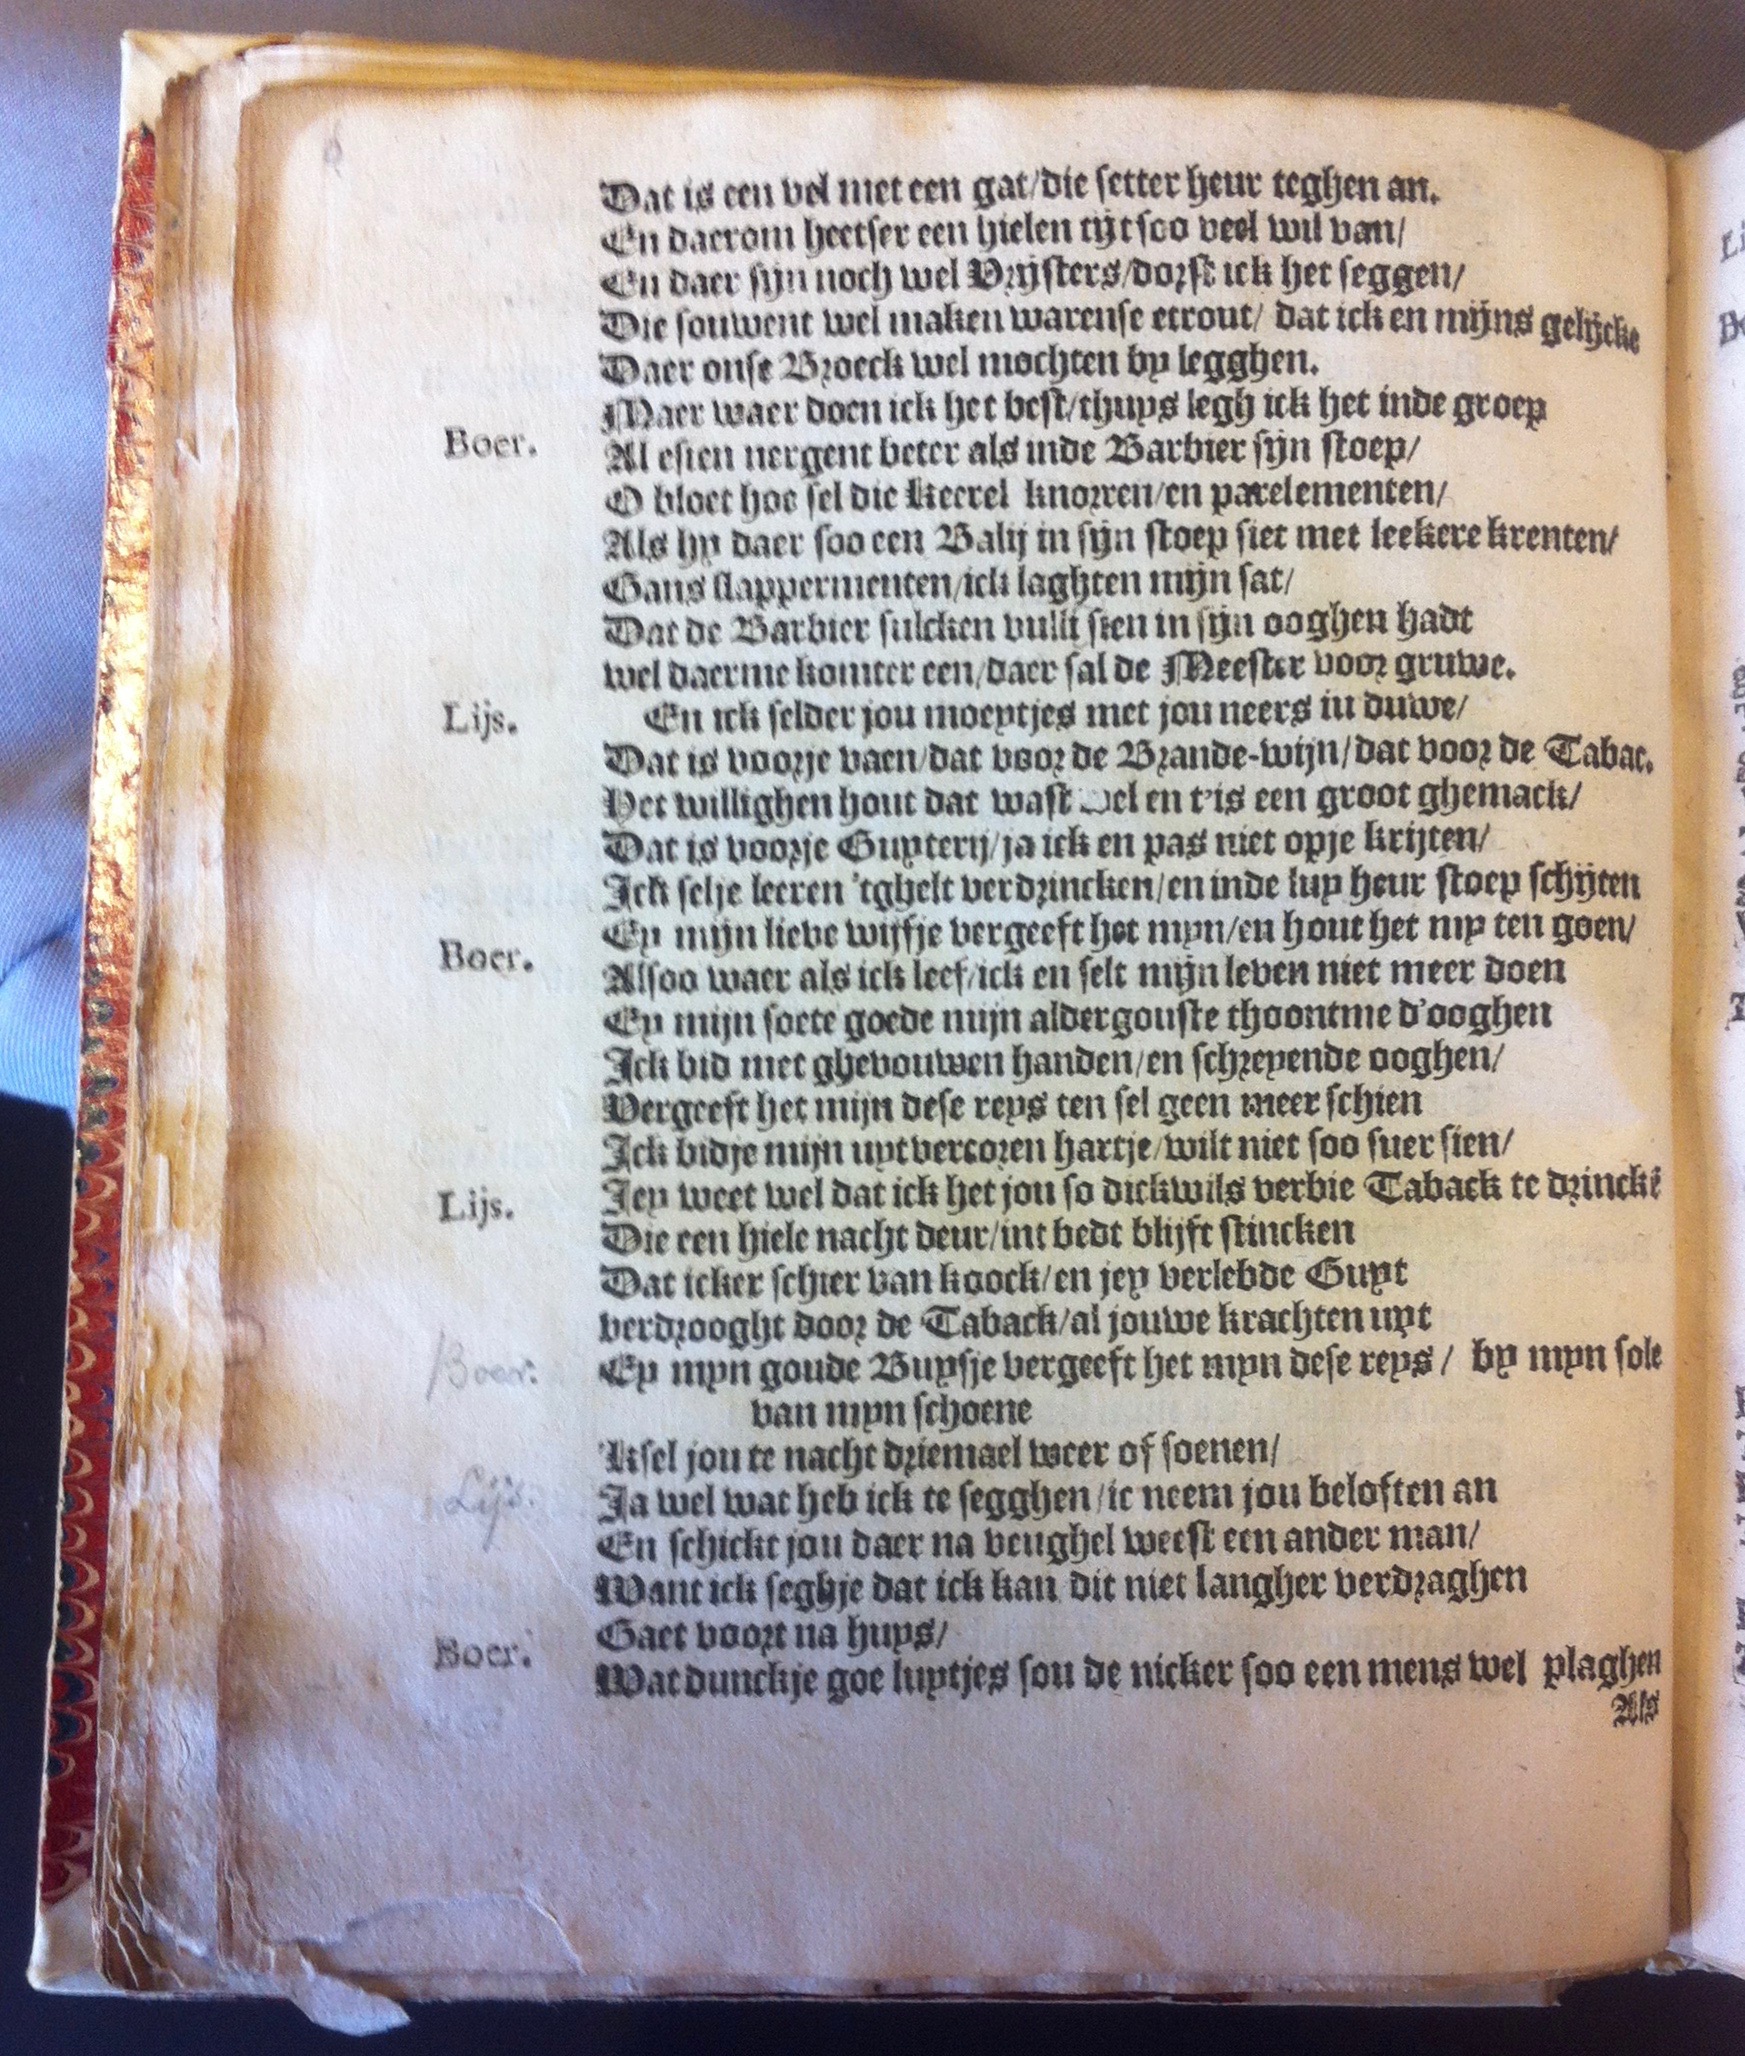 Dat is een vel met een gat/die setter heur teghen an.
En daerom heetser een hielen tijt soo veel wil van/
En daer sijn noch wel Vrijsters/dorst ick het seggen/
Die souwent wel maken warense etrout/ dat ick en mijns gelijcke
Daer onse Broeck wel mochten by legghen.
Maer waer doen ick het best/thuys legh ick het inde groep
Boer. Al esien nergent beter als inde Barbier sijn stoep/
O bloet hoe sel die Keerel knorren/en parelementen/
Als hy daer soo een Balij in sijn stoep siet met leekere krenten/
Gans slappermenten/ick laghten mijn sat/
Dat de Barbier sulcken vulli sien in sijn ooghen hadt
wel daerme komter een/daer sal de Meester voor gruwe.
Lijs. En ick selder jou moeytjes met jou neers in duwe/
Dat is voorje vaen/dat voor de Brande-wijn/dat voor de Tabac.
Het willighen hout dat wast wel en t'is een groot ghemack/
Dat is voorje Guyterij/ja ick en pas niet opje krijten/
Ick selje leeren 'tghelt verdrincken/en inde luy heur stoep schijten
Boer. Ey mijn lieve wijfje vergeeft het myn/en hout het my ten goen/
Alsoo waer als ick leef/ick en selt mijn leven niet meer doen
Ey mijn soete goede mijn aldergouste thoontme d'ooghen
Ick bid met ghevouwen handen/en schreyende ooghen/
Vergeeft het mijn dese reys ten sel geen meer schien
Ick bidje mijn uytvercoren hartje/wilt niet soo suer sien/
Lijs. Jey weet wel dat ick het jou so dickwils verbie Taback te drinckē
Die een hiele nacht deur/int bedt blijft stincken
Dat icker schier van koock/en jey verlebde Guyt
verdrooght door de Taback/al jouwe krachten uyt
Boer. Ey myn goude Buysje vergeeft het myn dese reys/ by myn sole
van myn schoene
'Ksel jou te nacht driemael weer of soenen/
Lijs. Ja wel wat heb ick te segghen/ic neem jou beloften an
En schickt jou daer na veughel weest een ander man/
Want ick seghje dat ick kan dit niet langher verdraghen
Gaet voort na huys/
Boer. Wat dunckje goe luytjes sou de nicker soo een mens wel plaghen
Als